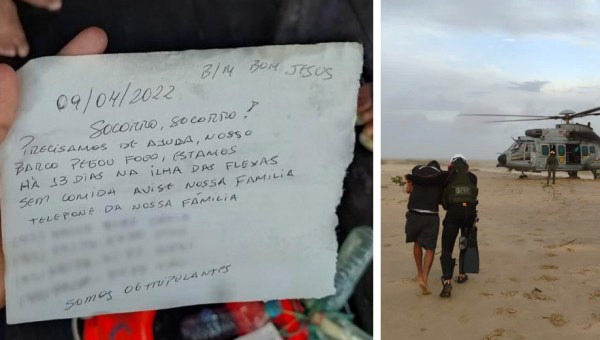 B/M BOM JESUS
09/04/2022
SOCORRO, SOCORRO!
PRECISAMOS DE AJUDA, NOSSO
BARCO PEGOU FOGO, ESTAMOS
HÁ 13 DIAS NA ILHA DAS FLEXAS
SEM COMIDA AVISE NOSSA FAMILIA
TELEFONE DA NOSSA FÁMILIA
SOMOS 06 TRIPULANTES